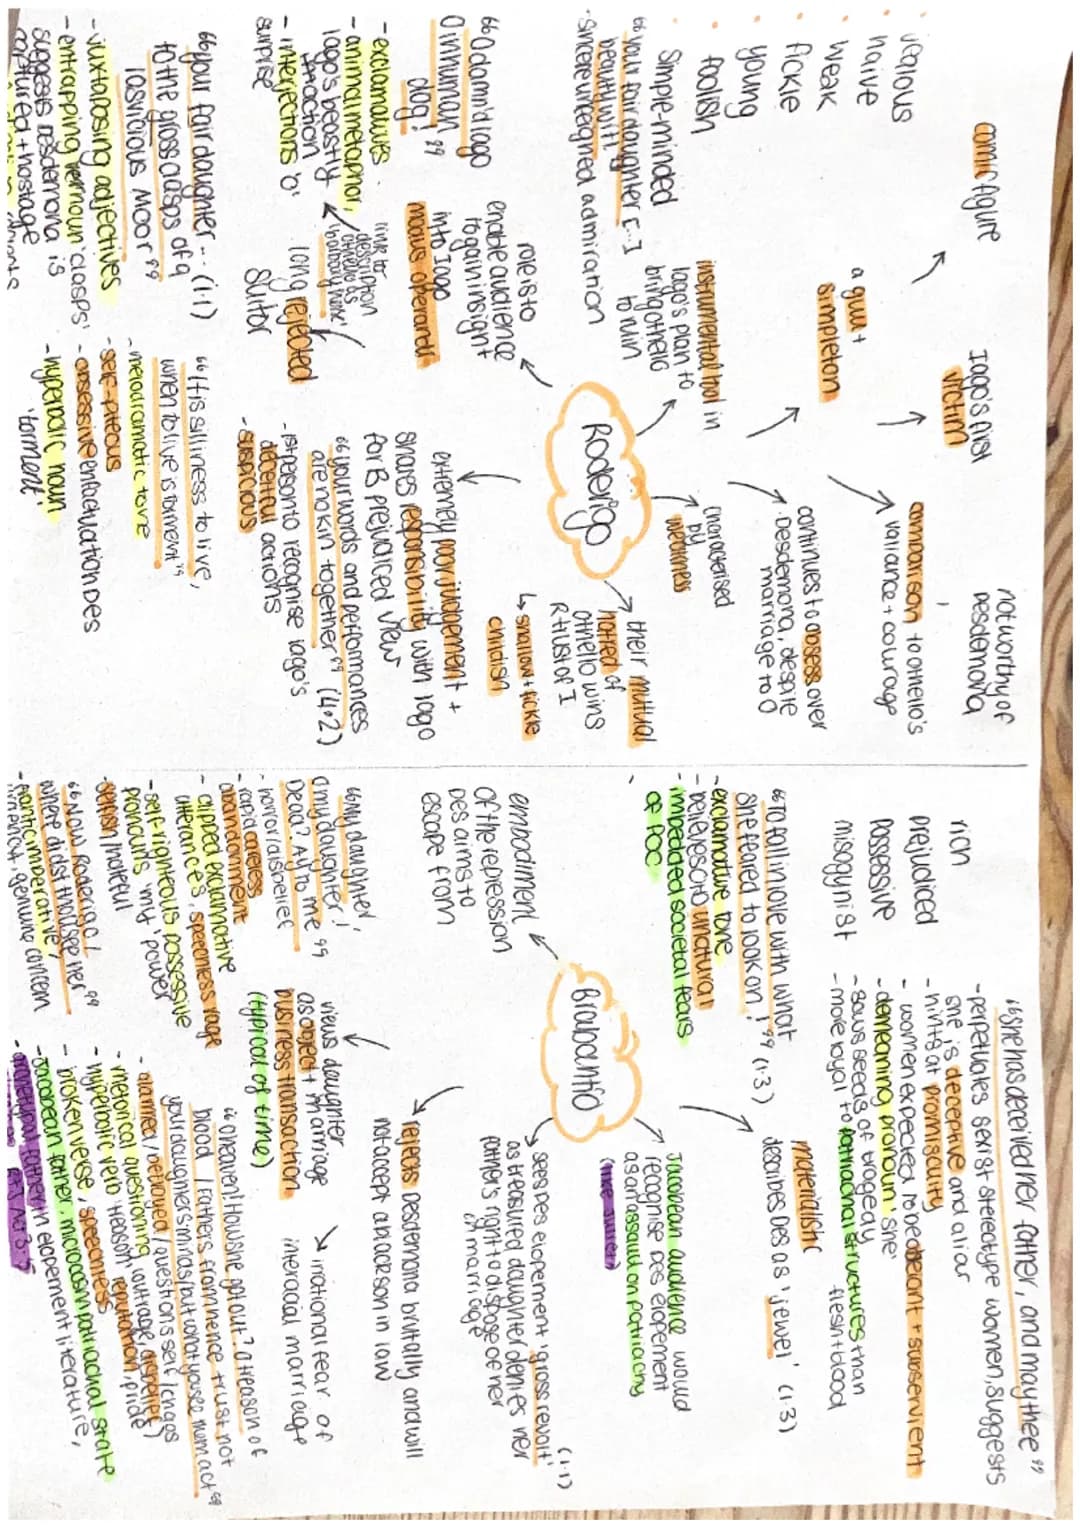 comic figure
Iago's first
victim
not worthy of
Desdemona
jealous
naive
weak
fickle
young
foolish
simple-minded
a gull +
simpleton
comparison to othello's
valiance + courage
continues to obsess over
Desdemona, despite
marriage to O
characterised
by
weakness
instrumental tool in
Iago's plan to
bring othello
to ruin
"your fair daughter [...]
beauty, wit"
- sincere unfeigned admiration
Roderigo
their mutual
hatred of
othello wins
R trust of I
↳ shallow + fickle
childish
role is to
enable audience
to gain insight
into Iago
modus operandi
"O damn'd Iago
O inhuman
dog!"
- exclamatives
- animal metaphor,
Iago's beastly
- interjections 'o'
surprise
link to
description
othello as
'barbary horse'
long rejected
suitor
extremely poor judgement +
shares responsibility with Iago
for B prejudiced view
"your words and performances
are no kin together" (4.2)
- 1st person to recognise Iago's
deceitful actions
- suspicious
"your fair daughter... (1.1)
to the gross clasps of a
lascivious Moor"
- juxtaposing adjectives
- entrapping 'clasps'
suggests Desdemona is
captured + hostage
"It is silliness to live,
when to live is torment"
- melodramatic tone
- self-piteous
- obsessive enfactuation Des
- hyperbolic noun
'torment'
"She has deceived her father, and may thee"
- perpetuates sexist stereotype women, suggests
she is deceptive and a liar
- hints at promiscuity
- women expected to be obediant + subservient
- demeaning pronoun 'she'
- sows seeds of tragedy
- more loyal to patriachal structures than
flesh + blood
rich
prejudiced
possessive
misogynist
materialistic
describes Des as 'jewel' (1.3)
"To fall in love with what
she feared to look on!" (1.3)
- exclamative tone
- believes its unatural
- impedded societal fears
of POC
Jacobean audience would
recognise Des elopement
as an assault on patriachy
Brabantio
embodiment
of the repression
Des aims to
escape from
sees Des elopement 'gross revolt' (1.1)
as treasured daughter denies her
father's right to dispose of her
in marriage
rejects Desdemona brutally and will
not accept a in law
views daughter
as object + marriage
business transaction
(typical of time)
irrational fear of
interacial marriage
"My daughter!
O my daughter!
Dead? Ay to me"
- horror / disbelief
- rapid
abandonment
- clipped exclamative
utterances, speechless rage
- self-righteous possessive
pronouns 'my' power
- selfish / hateful
"Now Roderigo!
where didst thou see her"
- frantic, imperative,
genuine concern
"O heaven! How she got out? O treason of
blood / Fathers from hence trust not
your daughters minds / but what you see them act"
- alarmed / betrayed / questions self /
- rhetorical questioning
- hyperbolic 'treason', reputation, pride
- broken verse, speechless
- Jacobean father, microcosm patriachal state
- archetypal father in elopement literature,